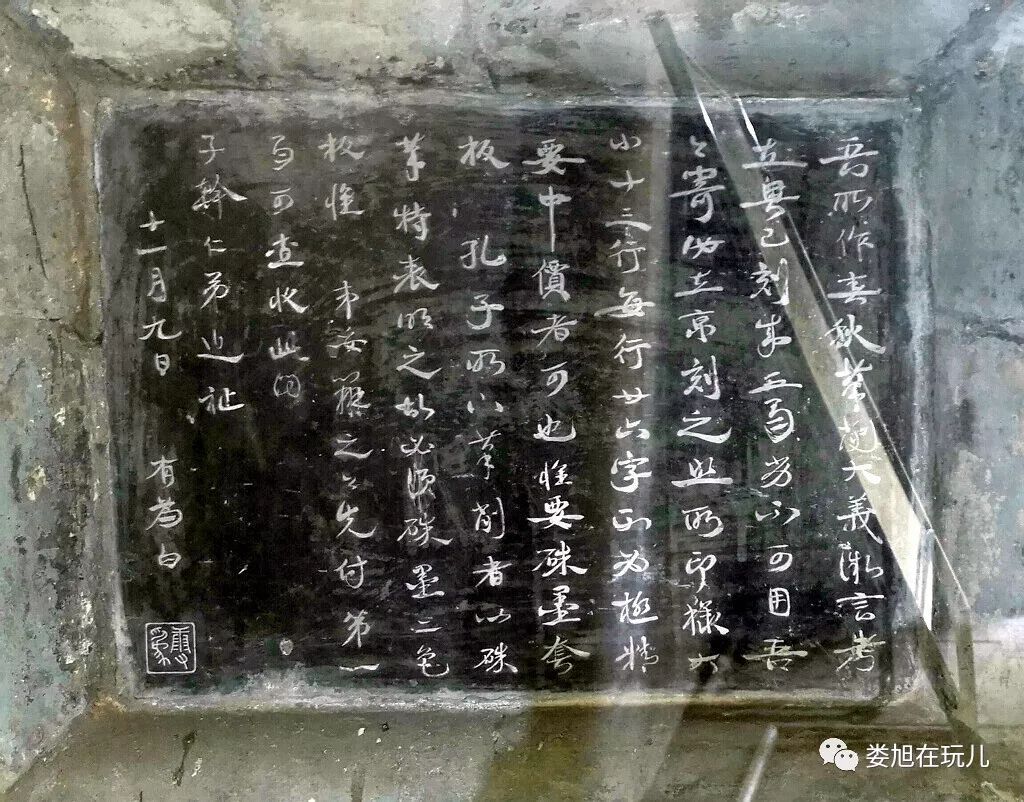 吾所作春秋筆削大義微言考
在粵已刻成五百 不可用吾
今寄汝在京刻之照所印樣六
小十三行每行廿六字 為極精
要中價者可也惟要硃墨套
板 孔子所以筆削者以硃
筆特表明之故必須硃墨二色
板惟 之今先付第一
百可查收此問
子幹仁弟近祉
十一月九日 有為白
娄旭在玩儿